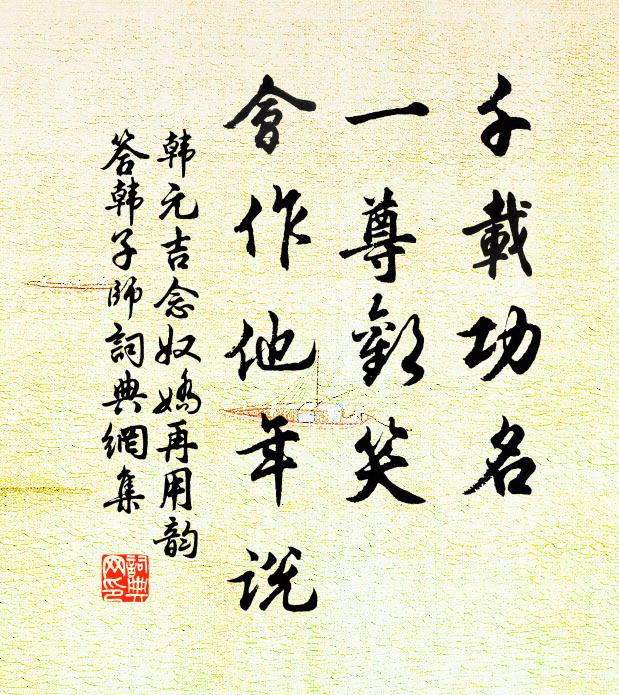 千載功名
一尊歡笑
會作他年說
韩元吉念奴嬌再用韵
答韩子師詞典網集
詞典
网印